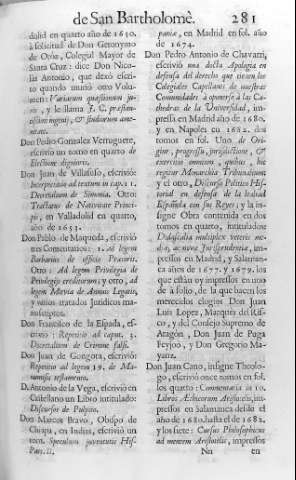 de San Bartholomè. 281
dalid en quarto año de 1640.
à solicitud de Don Geronymo
de Oria, Colegial Mayor de
Santa Cruz: dice Don Nico-
làs Antonio, que dexò escri-
to quando muriò otro Volu-
men: Variarum quæstionum ju-
ris, y le llama J. C. præstan-
Don Pedro Gonzalez Verruguete,
escriviò un tomo en quarto de
Electione dignioris.
Don Juan de Villasolo, escriviò:
Interpretatio ad textum in cap. 11.
Decretalium de Simonia. Otro:
Tractatus de Nativitate Princi-
pis, en Valladolid en quarto,
año de 1653.
Don Pablo de Maqueda, escriviò
tres Comentarios: 1. Ad legem
Barbarius de officio Prætoris.
Otro: Ad legem Privilegia de
Privilegiis creditorum; y otro, ad
legem Mævia de Annuis Legatis,
y otros tratados Juridicos ma-
nuscriptos.
Don Francisco de la Espada, es-
criviò: Repetitio ad caput. 3.
Decretalium de Crimine falsi.
Don Juan de Gongora, escriviò:
Repetitio ad legem 19. de Ma-
numissis testamento.
D. Antonio de la Vega, escriviò en
Castellano un Libro intitulado:
Discursos de Pulpito.
Don Marcos Bravo, Obispo de
Chiapa, en Indias, escriviò un
tom. Speculum juventutis His-
Part. II.
paniæ, en Madrid en fol. año
de 1674.
Don Pedro Antonio de Chavarri,
escriviò una docta Apologia en
defensa del derecho que tienen los
Colegiales Capellanes de nuestras
Comunidades à oponerse à las Ca-
thedras de la Universidad, im-
pressa en Madrid año de 1680.
y en Napoles en 1682. dos
tomos en fol. Uno de Ori-
gine, progressu, jurisdictione, &
exercitio omnium, quibus, hic
regitur Monarchia Tribunalium;
y el otro, Discurso Politico His-
torial en defensa de la lealtad
Española con sus Reyes; y la in-
signe Obra contenida en dos
tomos en quarto, intitulados:
Didascalia multiplex veteris me-
diæ, ac novæ Jurisprudentiæ, im-
pressos en Madrid, y Salaman-
ca años de 1677. y 1679. los
que están yà impressos en uno
de à folio, de la que hacen los
merecidos elogios Don Juan
Luis Lopez, Marquès del Ris-
co, y del Consejo Supremo de
Aragon, Don Juan de Puga
Feyjoo, y Don Gregorio Ma-
yanz.
Don Juan Cano, insigne Theolo-
go, escriviò once tomos en fol.
los quatro: Commentaria in 10.
Libros Æthicorum Aristotelis, im-
pressos en Salamanca desde el
año de 1680. hasta el de 1682.
y los siete: Cursus Philosophicus
ad mentem Aristotelis, impressos
Nn en